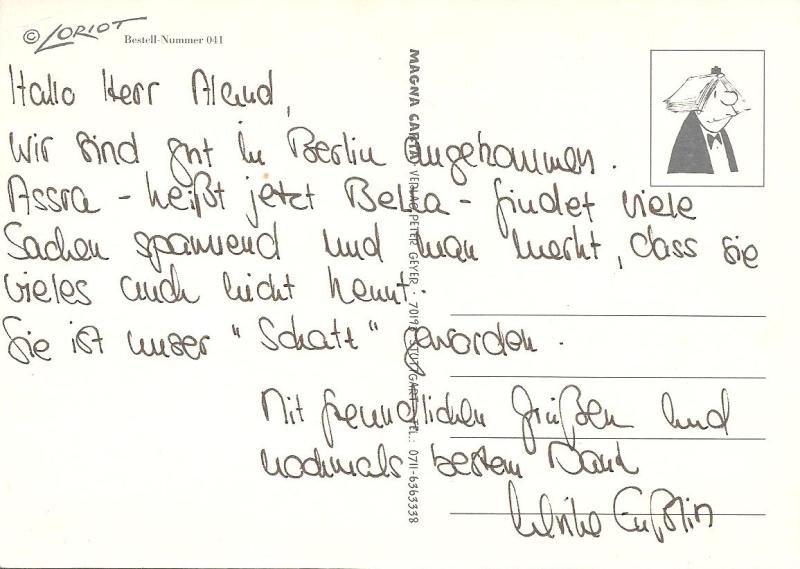 © LORIOT Bestell-Nummer 041
Hallo Herr Aland,
Wir sind gut in Berlin angekommen.
Assra – heißt jetzt Bella – findet viele
Sachen spannend und man merkt, dass sie
vieles auch nicht kennt.
Sie ist unser "Schatt" geworden.
Mit freundlichen Grüßen und
nochmals besten Dank
Ulrike Enßlin
MAGNA CARTA · VERLAG PETER GEYER · 7019 STUTTGART · TEL.: 0711-6363338